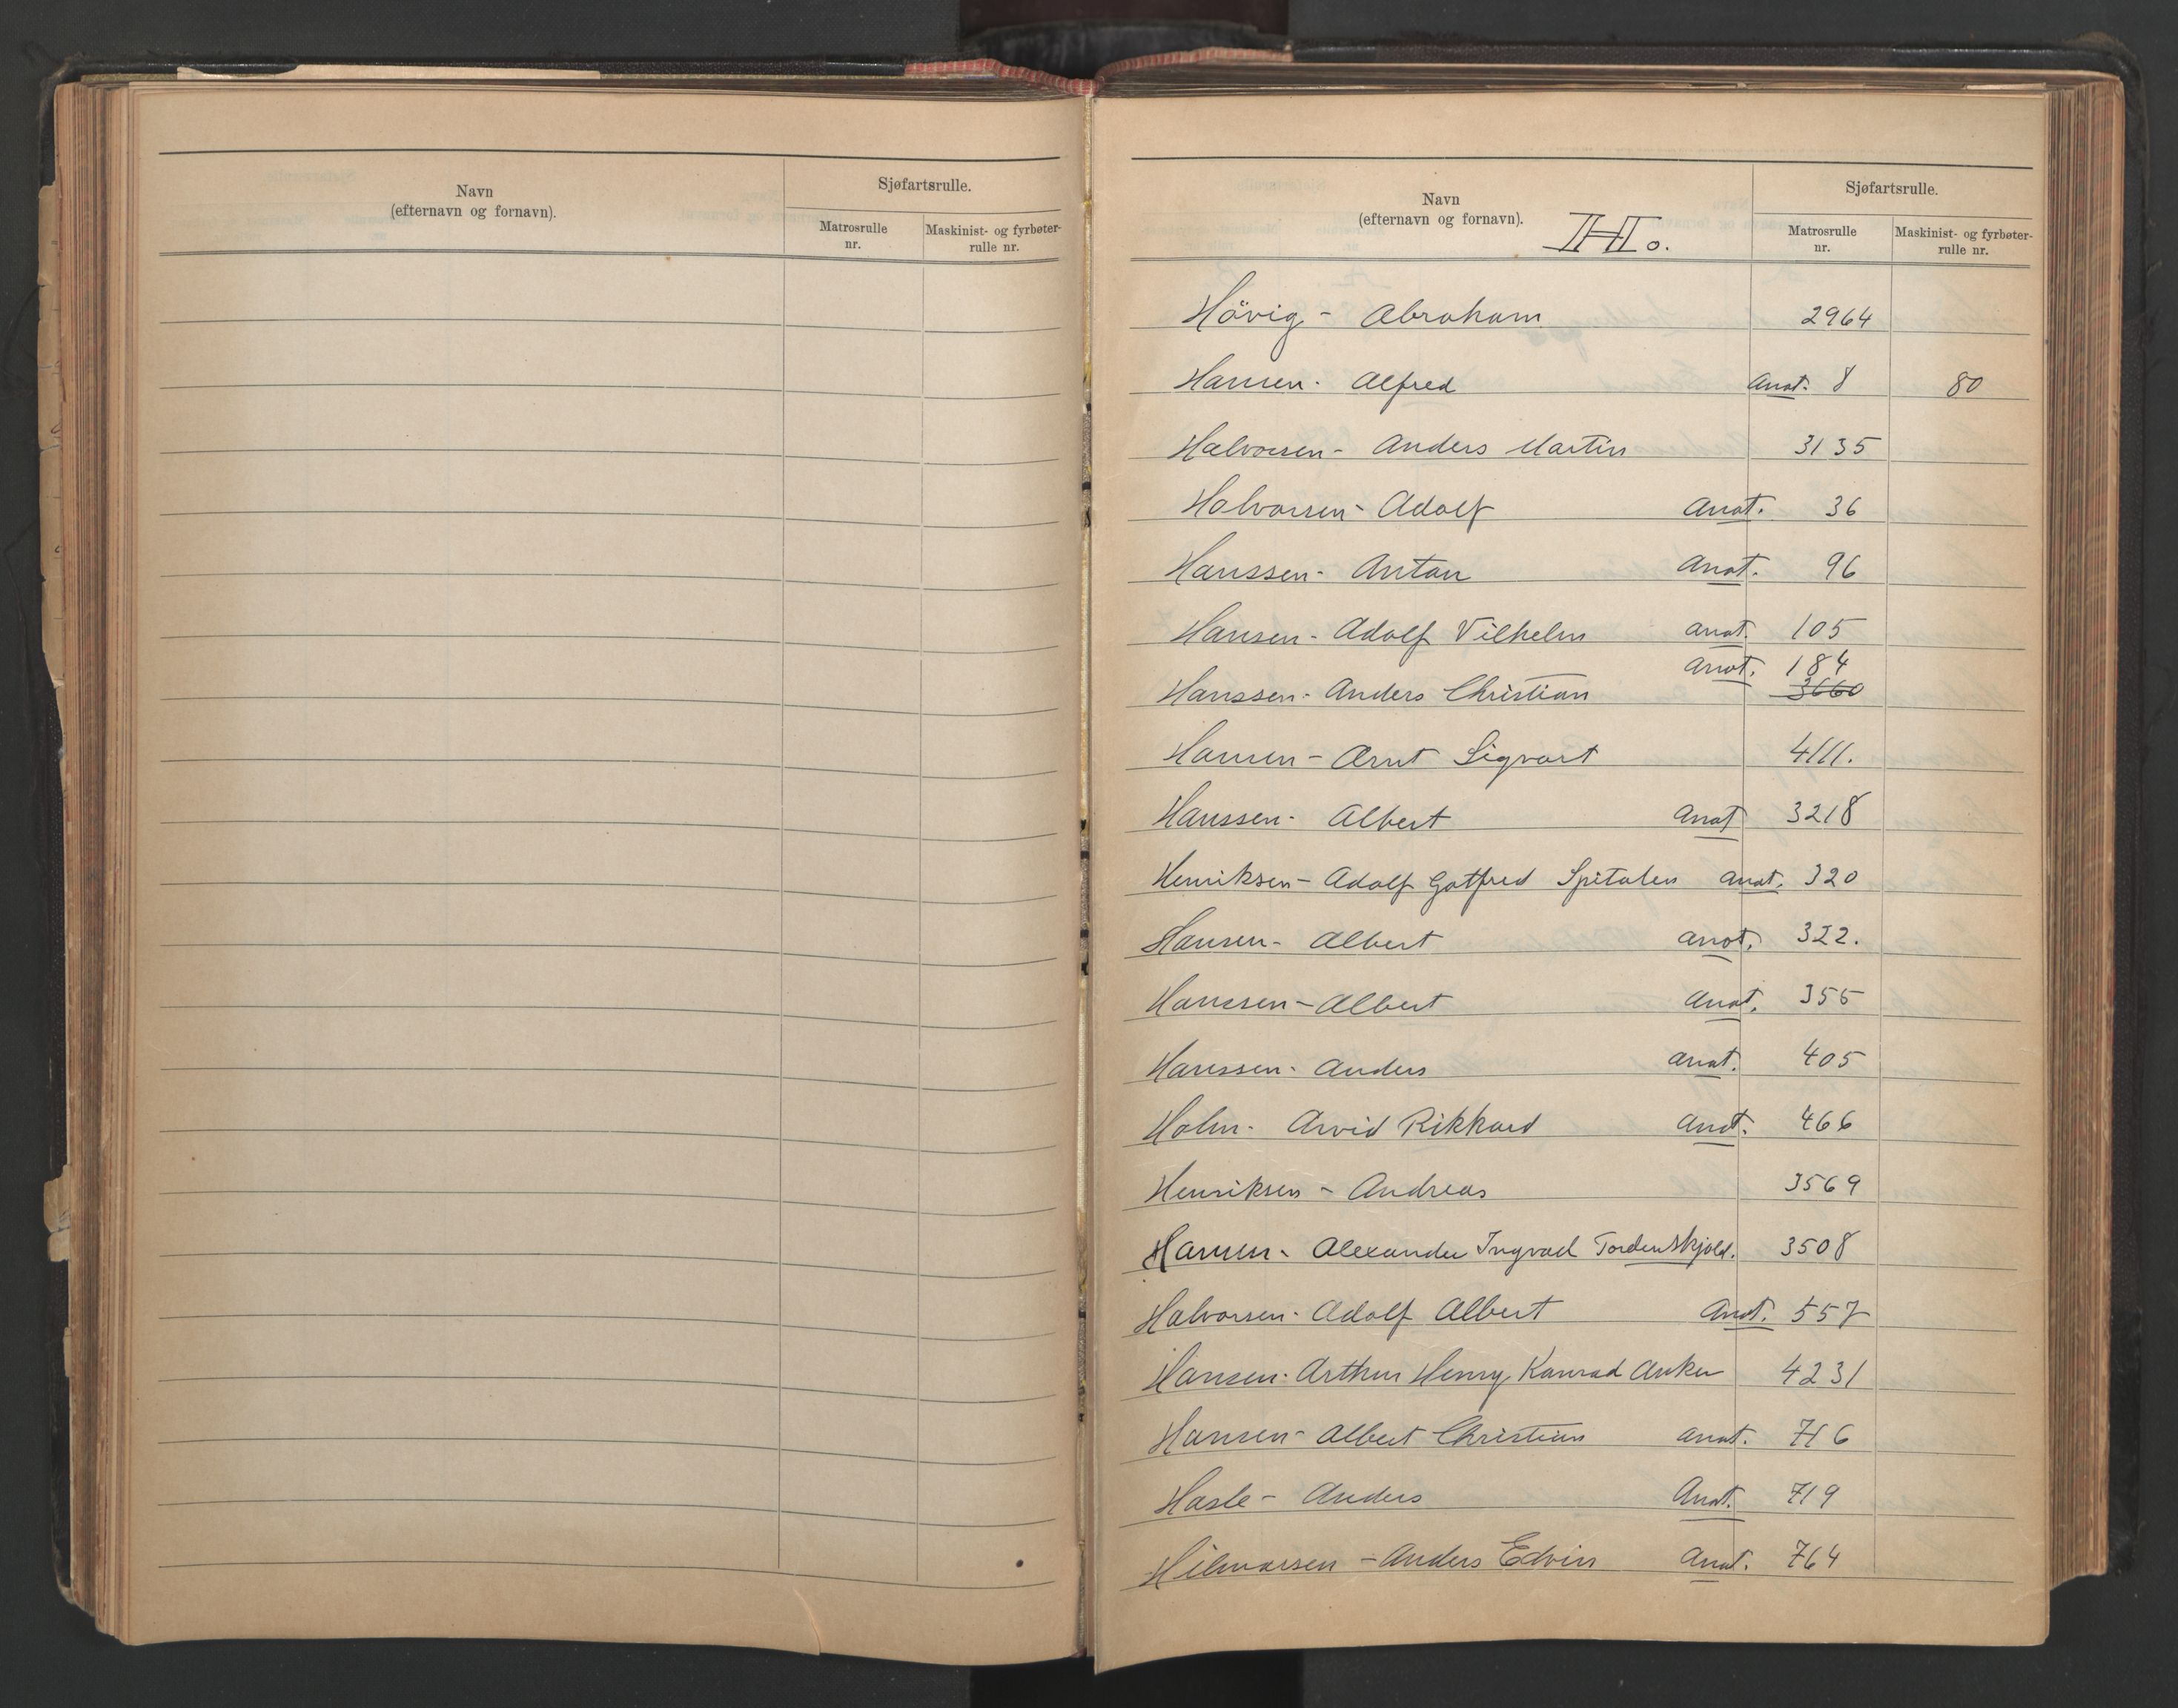 Navn
(efternavn og fornavn).
Sjøfartsrulle.
Matrosrulle
nr.
Maskinist- og fyrbøter-
rulle nr.
Navn
(efternavn og fornavn).
H.
Sjøfartsrulle.
Matrosrulle
nr.
Maskinist- og fyrbøter-
rulle nr.
Hövig - Abraham 2964
Hansen - Alfred Anot. 8 80
Halvorsen - Anders Martin 3135
Halvorsen - Adolf Anot. 36
Hanssen - Anton Anot. 96
Hansen - Adolf Vilhelm anot. 105
Anot. 184
Hanssen - Anders Christian 3660
Hansen - Arnt Sigvart 4111.
Hanssen - Albert Anot 3218
Henriksen - Adolf Gotfred Spitalen anot. 320
Hansen - Albert anot. 322.
Hanssen - Albert Anot. 355
Hanssen - Anders anot. 405
Holm - Arvid Rikkard Anot. 466
Henriksen - Andreas 3569
Hansen - Alexander Ingvad Tordenskjold. 3508
Halvorsen - Adolf Albert Anot. 557
Hansen - Arthur Henry Konrad Anker 4231
Hansen - Albert Christian anot. 716
Hasle - Anders Anot. 719
Hilmarsen - Anders Edvin Anot. 764